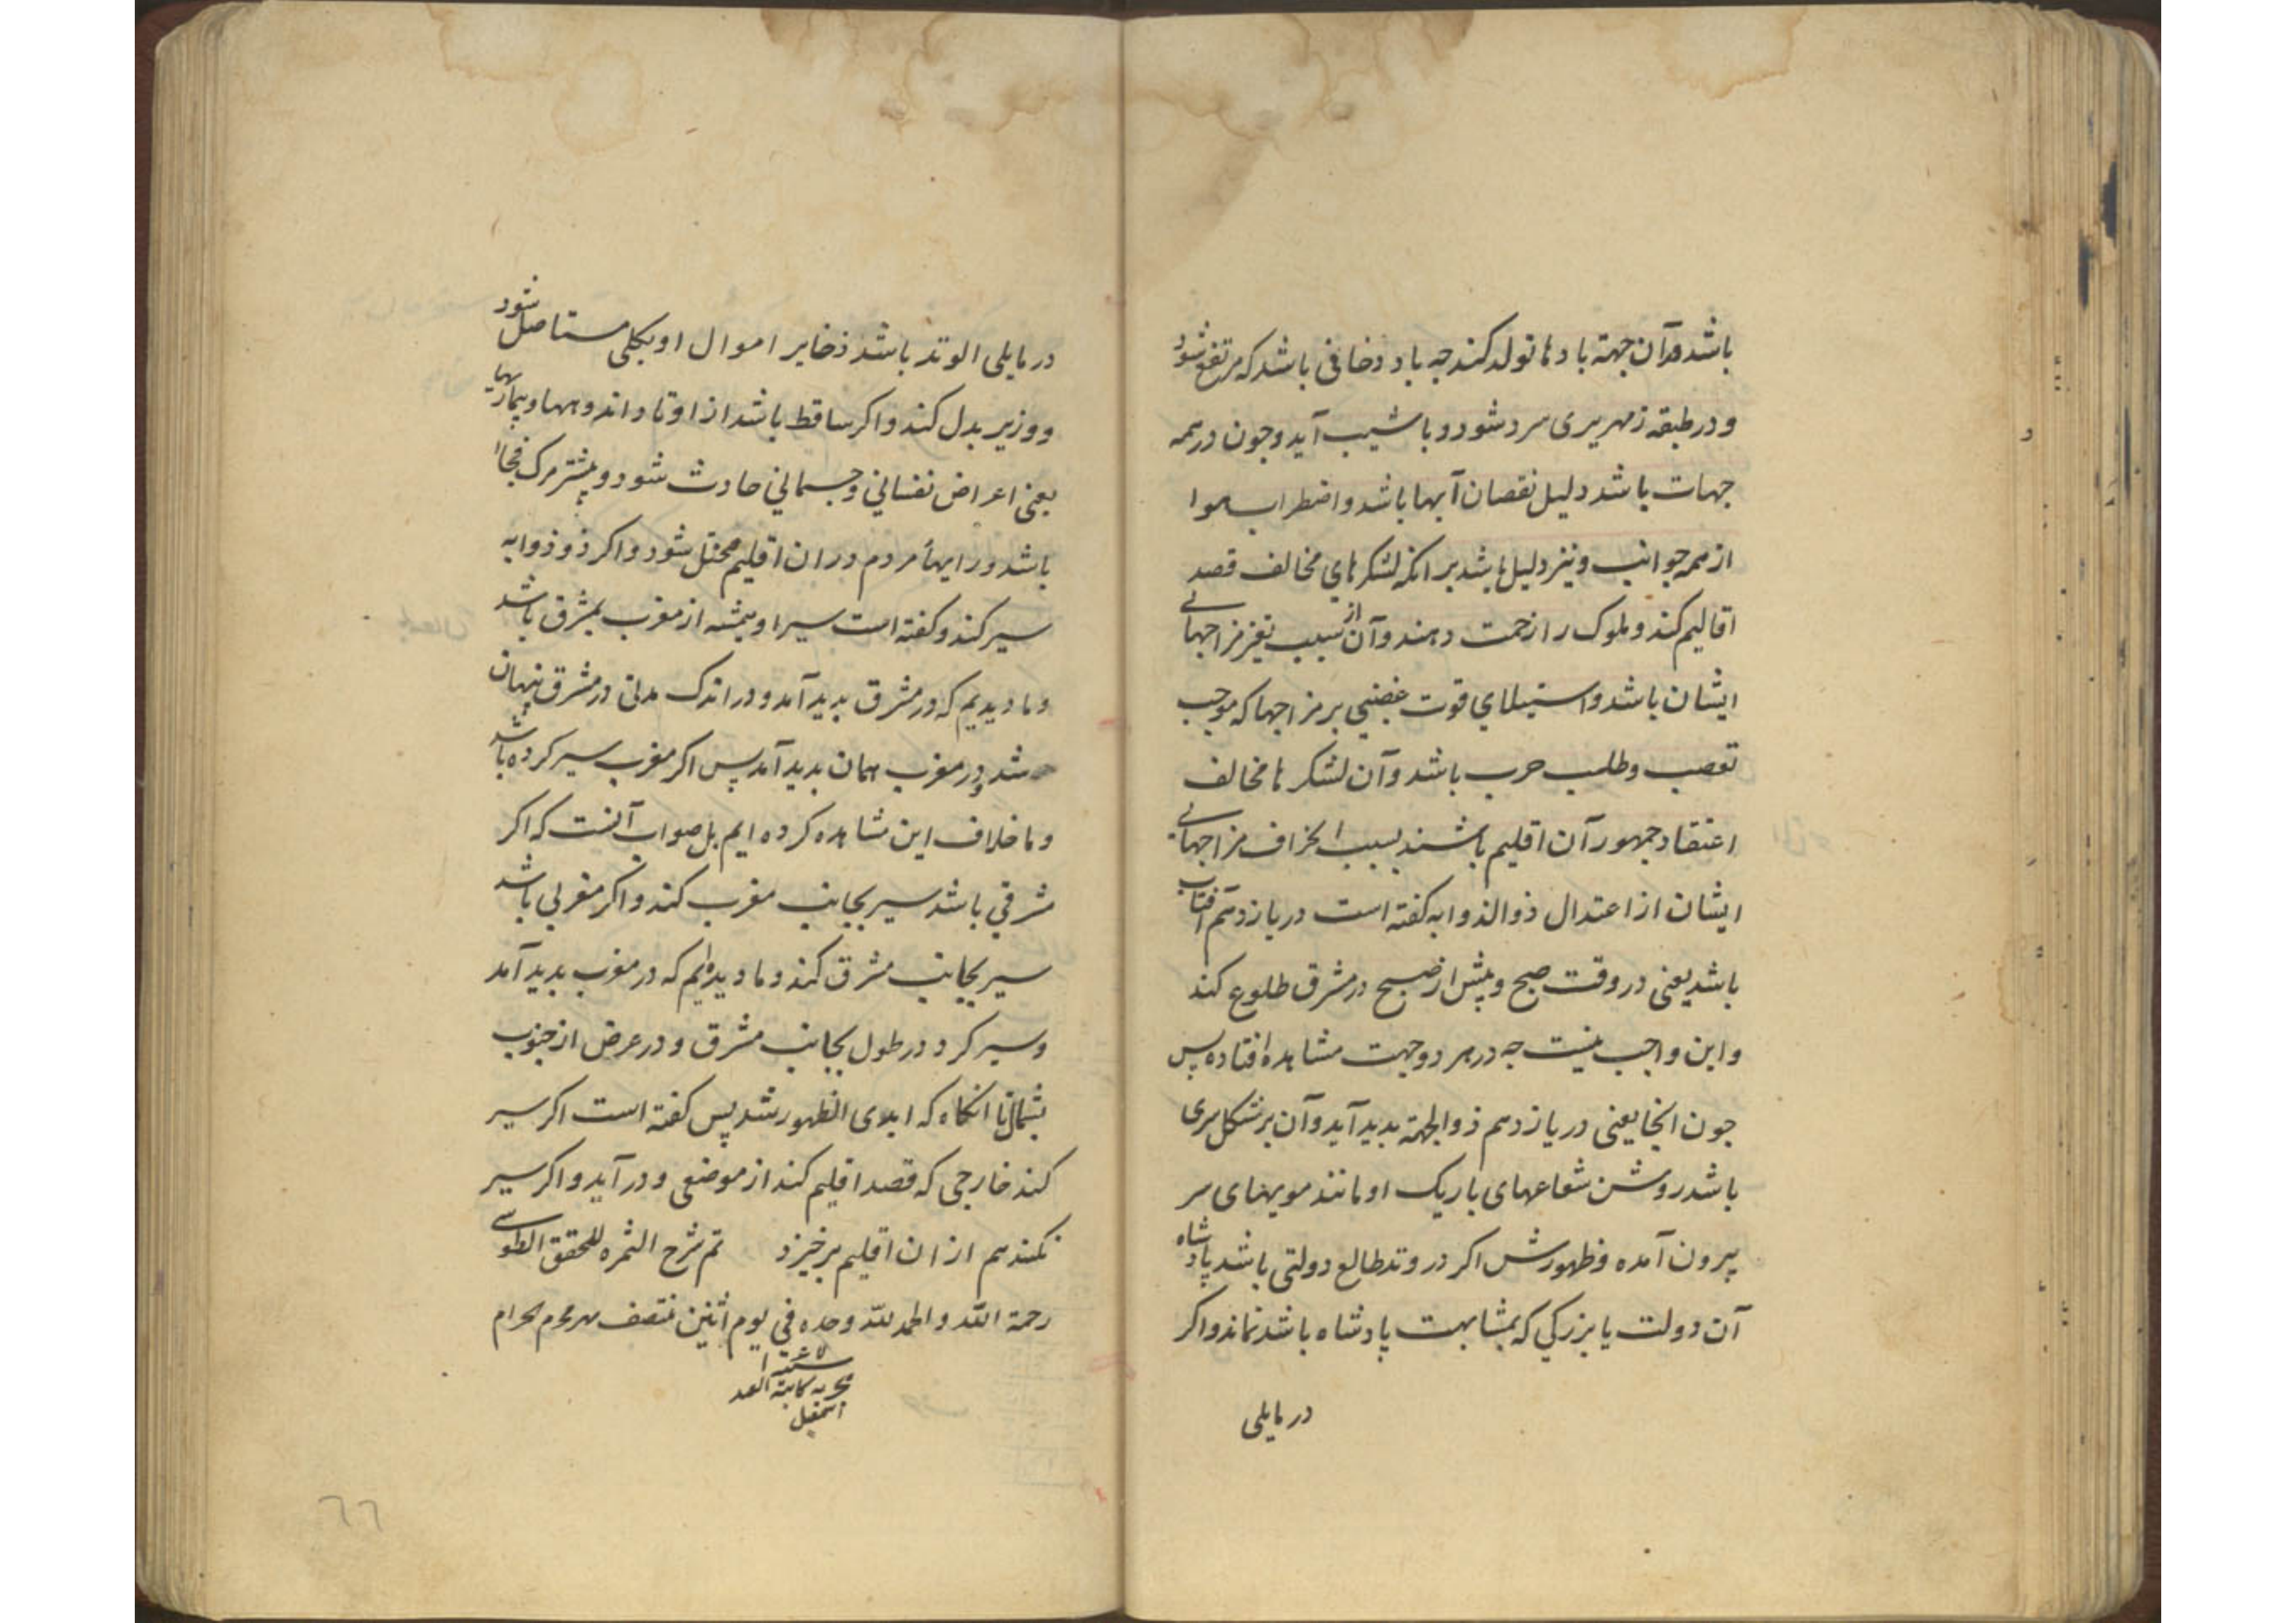 باشد در آن جهة بادها تولد کند جه باد دخانی باشد که مرتفع شود
و در طبقه زمهریری سرد شود و با شیب آید و جون در همه
جهات باشد دلیل نقصان آبها باشد و اضطراب هوا
از همه جوانب و نیز دلیل باشد بر انکه لشکرهای مخالف قصد
اقالیم کند و ملوک را زحمت دهند و آن از سبب تغیر مزاجهائ
ایشان باشد و استیلای قوت غضبی بر مزاجها که موجب
تعصب و طلب حرب باشد و آن لشکرها مخالف
اعتقاد جمهور آن اقلیم باشند بسبب انحراف مزاجهائ
ایشان از اعتدال ذو الذوابه کفته است در یازدهم آفتاب
باشد یعنی در وقت صبح و پیش از صبح در مشرق طلوع کند
و این واجب نیست جه در هر دو جهت مشاهده افتاده پس
جون انجا یعنی در یازدهم ذو الجمة بدید آید و آن بر شکل سری
باشد روشن شعاعهای باریک او مانند مویهای سر
بیرون آمده و ظهورش اکر در وتد طالع دولتی باشد پادشاه
آن دولت یا بزرکی که بمشابهت پادشاه باشد نماند و اکر
در مایلی
در مایلی الوتد باشد ذخایر اموال او بکلی مستاصل شود
و وزیر بدل کند و اکر ساقط باشد از اوتاد اندوهها و بیماریها
یعنی اعراض نفسانی و جسمانی حادث شود و بیشتر مرک فجاا
باشد و رایهأ مردم در ان اقلیم مختل شود و اکر ذو ذوابه
سیر کند و کفته است سیر او همیشه از مغرب بمشرق باشد
و ما دیدیم که در مشرق بدید آمد و در اندک مدتی در مشرق پنهان
شد و در مغرب همان بدید آمد پس اکر مغرب سیر کرده باشد
و ما خلاف این مشاهده کرده ایم بل صواب آنست که اکر
مشرقی باشد سیر بجانب مغرب کند و اکر مغربی باشد
سیر بجانب مشرق کند و ما دیده ایم که در مغرب بدید آمد
و سیر کرد در طول بجانب مشرق و در عرض از جنوب
بشمال تا انکاه که ابدی الظهور شد پس کفته است اکر سیر
کند خارجی که قصد اقلیم کند از موضعی و در آید و اکر سیر
نکند هم از ان اقلیم برخیزد تم شرح الثمره للمحقق الطوسی
رحمة الله و الحمد لله وحده فی یوم اثنین منتصف محرم الحرام
اسمعیل
٦٦